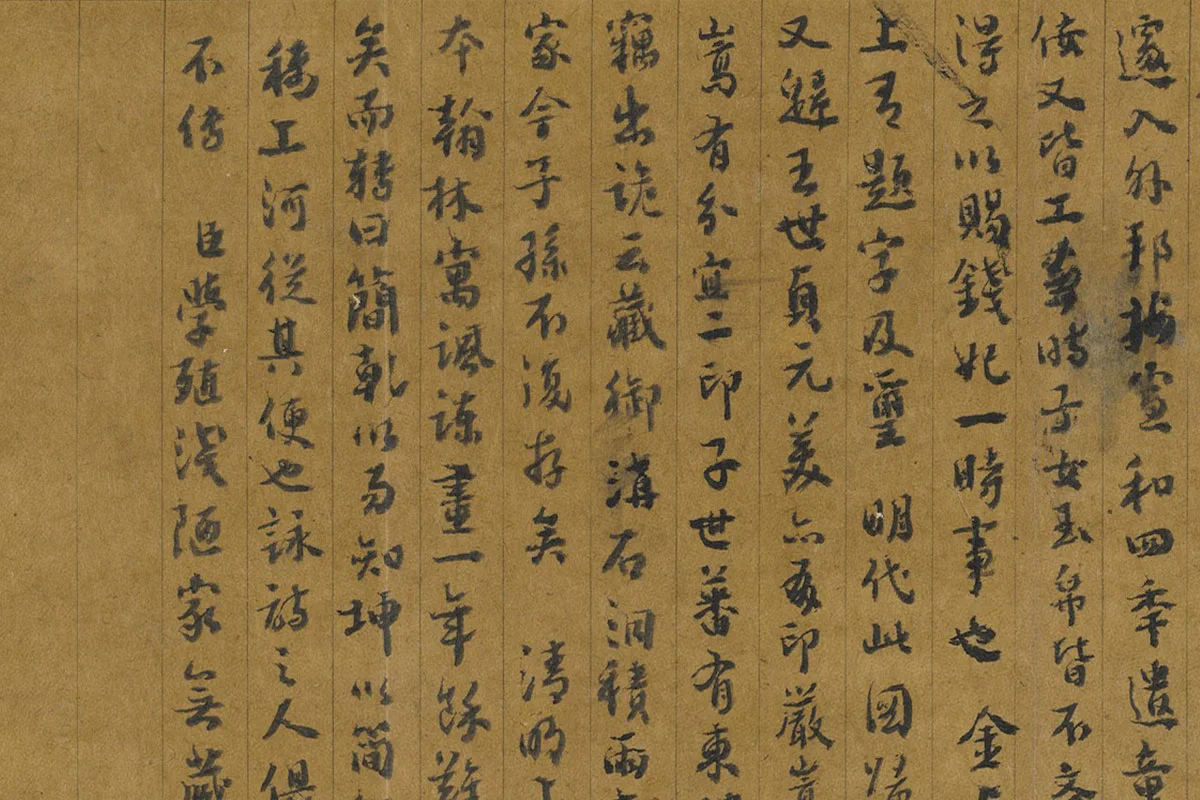 遼入外邦接宣和四季遣童
倭又皆工藝時子女玉帛皆不交
得之以賜錢妃一時事也 金
上有題字及璽 明代此圖歸
又疑王世貞元美亦及印嚴嵩
嵩有分宜二印子世蕃有東
竊出詭云藏御溝石洞積雨
家今子孫不復存矣 清明上
本翰林寓諷諫畫一年餘難
矣而转曰簡乾以易知坤以簡
稱工河從其便也詠詩之人俱
不傳 臣學殖淺陋家無藏